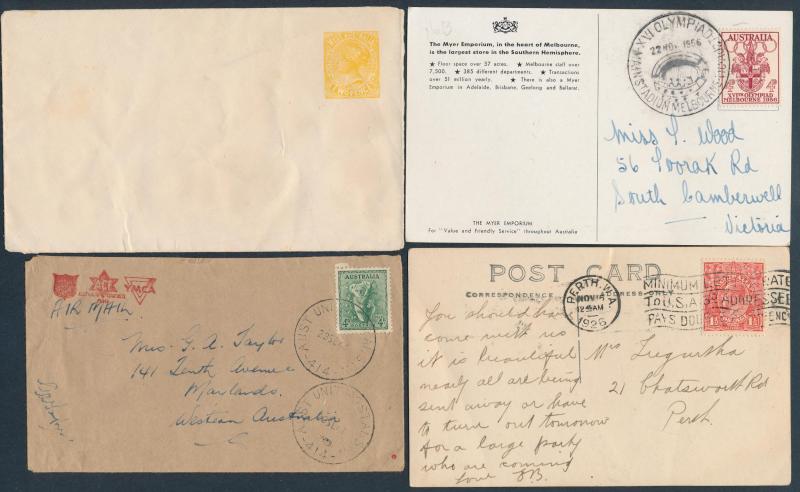 The Myer Emporium, in the heart of Melbourne,
is the largest store in the Southern Hemisphere.
★ Floor space over 37 acres. ★ Melbourne staff over
7,500. ★ 385 different departments. ★ Transactions
over 51 million yearly. ★ There is also a Myer
Emporium in Adelaide, Brisbane, Geelong and Ballarat.
THE MYER EMPORIUM
For "Value and Friendly Service" throughout Australia
XVI OLYMPIAD
22 NOV 1956
MAIN STADIUM MELBOURNE
AUSTRALIA
XVITH OLYMPIAD
MELBOURNE 1956
Miss L. Wood
56 Toorak Rd
South Camberwell
Victoria
YMCA
AIR MAIL
AUSTRALIA
4D
AUST UNIT POSTAL STN
414
AUST UNIT POSTAL STN
414
Mrs. G. A. Taylor
141 Tenth Avenue
Maylands.
Western Australia
POST CARD
CORRESPONDENCE
ADDRESS ONLY
PERTH. W.A.
NOV 14
12 AM
1925
MINIMUM RATE
TO U.S.A. ADDRESSEE
PAYS DOUBLE
1½ 1½
You should have
come with us
it is beautiful
nearly all are being
sent away or have
to turn out tomorrow
for a large party
who are coming
love
Mrs Tregurtha
21 Chatsworth Rd
Perth.